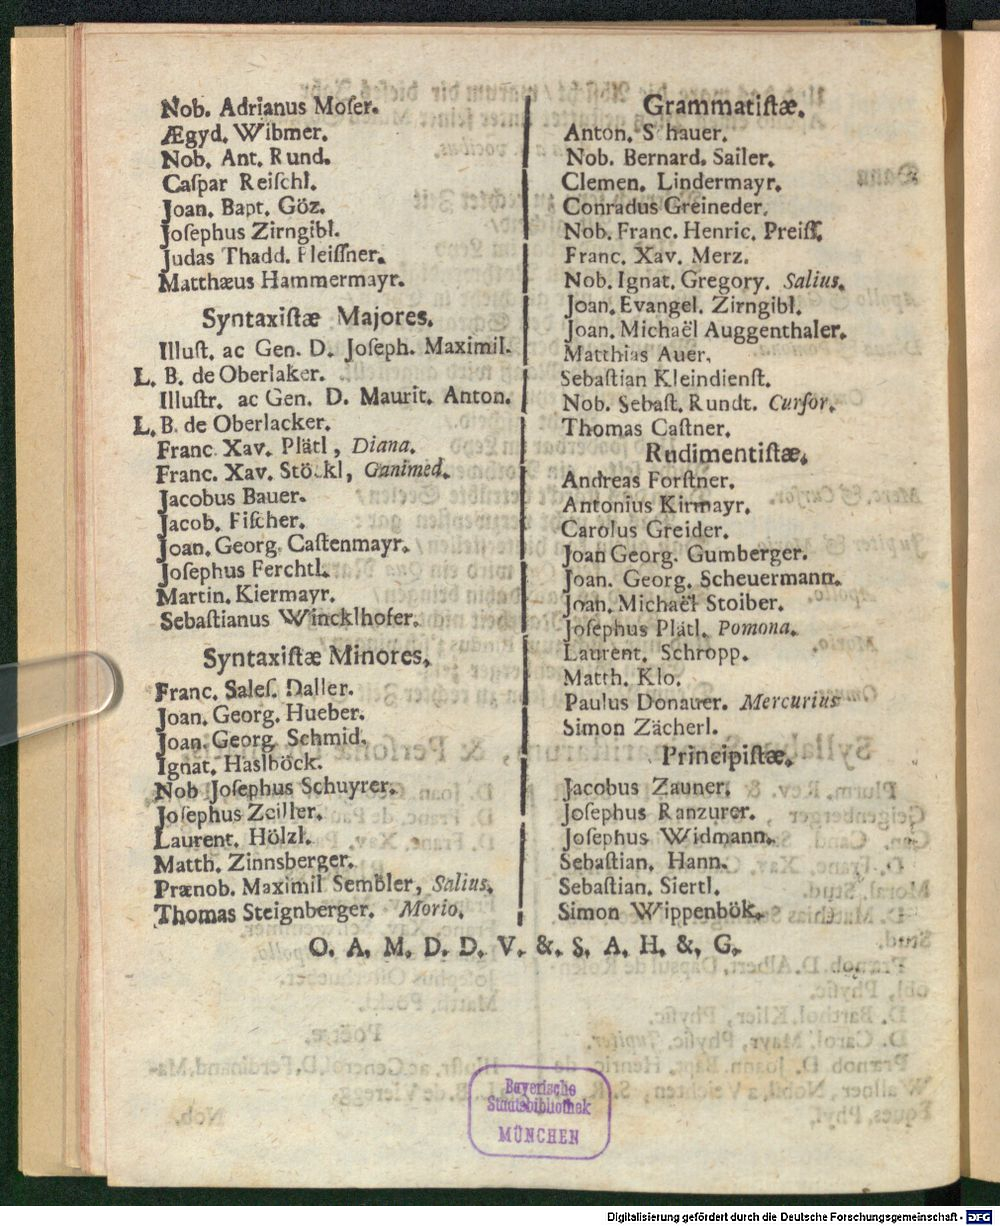 Nob. Adrianus Moſer.
Ægyd. Wibmer.
Nob. Ant. Rund.
Caſpar Reiſchl.
Joan. Bapt. Göz.
Joſephus Zirngibl.
Judas Thadd. Pleiſſner.
Matthæus Hammermayr.
Syntaxiſtæ Majores.
Illuſt. ac Gen. D. Joſeph. Maximil.
L. B. de Oberlaker.
Illuſtr. ac Gen. D. Maurit. Anton.
L. B. de Oberlacker.
Franc. Xav. Plätl, Diana.
Franc. Xav. Stöckl, Ganimed.
Jacobus Bauer.
Jacob. Fiſcher.
Joan. Georg. Caſtenmayr.
Joſephus Ferchtl.
Martin. Kiermayr.
Sebaſtianus Wincklhofer.
Syntaxiſtæ Minores.
Franc. Saleſ. Daller.
Joan. Georg. Hueber.
Joan. Georg. Schmid.
Ignat. Haslböck.
Nob Joſephus Schuyrer.
Joſephus Zeiller.
Laurent. Hölzl.
Matth. Zinnsberger.
Prænob. Maximil Sembler, Salius.
Thomas Steignberger. Morio.
Grammatiſtæ.
Anton. S hauer.
Nob. Bernard. Sailer.
Clemen. Lindermayr.
Conradus Greineder.
Nob. Franc. Henric. Preiſſ.
Franc. Xav. Merz.
Nob. Ignat. Gregory. Salius.
Joan. Evangel. Zirngibl.
Joan. Michaël Auggenthaler.
Matthias Auer.
Sebaſtian Kleindienſt.
Nob. Sebaſt. Rundt. Curſor.
Thomas Caſtner.
Rudimentiſtæ.
Andreas Forſtner.
Antonius Kirmayr.
Carolus Greider.
Joan Georg. Gumberger.
Joan. Georg. Scheuermann.
Joan. Michaël Stoiber.
Joſephus Plätl. Pomona.
Laurent. Schropp.
Matth. Klo.
Paulus Donauer. Mercurius
Simon Zächerl.
Principiſtæ.
Jacobus Zauner.
Joſephus Ranzurer.
Joſephus Widmann.
Sebaſtian. Hann.
Sebaſtian. Siertl.
Simon Wippenbök.
O. A. M. D. D. V. &. S. A. H. &. G.
Bayerische
Staatsbibliothek
MÜNCHEN
Digitalisierung gefördert durch die Deutsche Forschungsgemeinschaft - DFG